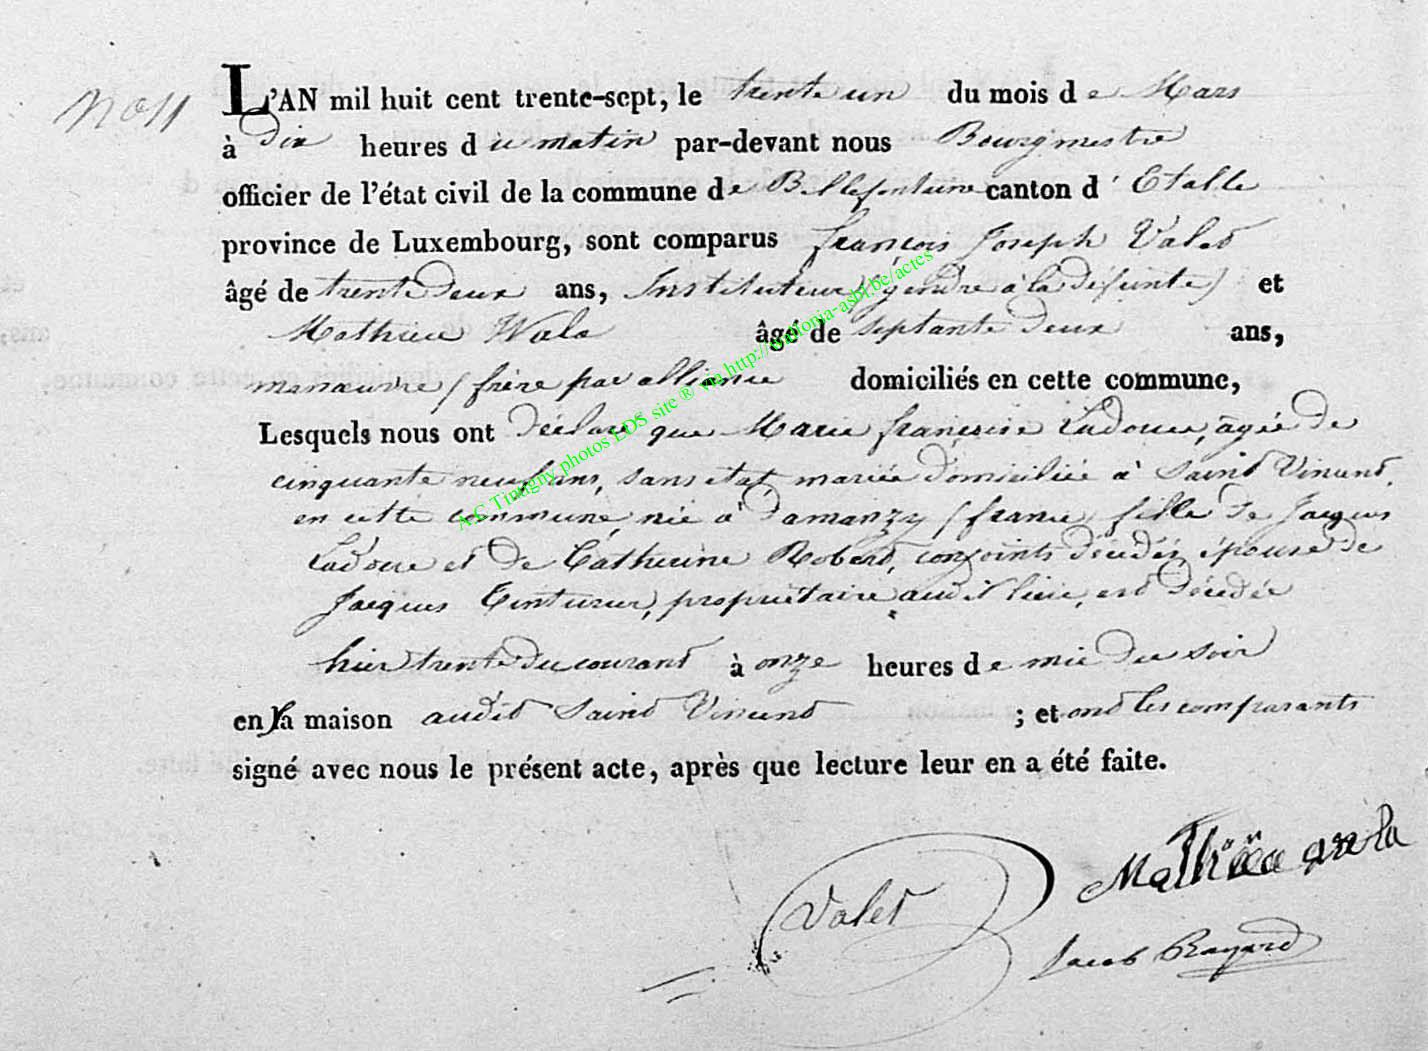 No 11
L'AN mil huit cent trente-sept, le trente un du mois de Mars
à dix heures du matin par-devant nous Bourgmestre
officier de l'état civil de la commune de Bellefontaine canton d' Etalle
province de Luxembourg, sont comparus françois Joseph Valet
âgé de trente deux ans, Instituteur (gendre à la défunte) et
Mathieu Wala âgé de septante deux ans,
manœuvre / frère par alliance domiciliés en cette commune,
Lesquels nous ont déclaré que Marie françoise Ladouce, agée de
cinquante neuf ans, sans etat mariée domiciliée à Saint Vincent,
en cette commune née à Damanzy / france / fille de Jacques
Ladouce et de Catherine Robert, conjoints décédés épouse de
Jacques Tinturier, propriétaire audit lieu, est décédée
hier trente du courant à onze heures de mie du soir
en sa maison audit Saint Vincent ; et ont les comparants
signé avec nous le présent acte, après que lecture leur en a été faite.
Mathieu wala
Valet
Jacob Rayard
A.C Tintigny photos LDS site ® via http://wallonia-asbl.be/actes